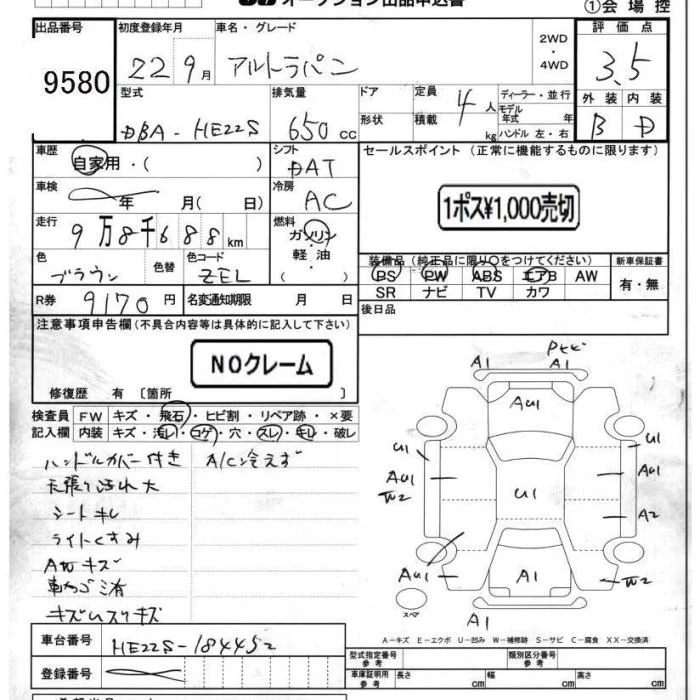 オークション出品申込書
①会場控
出品番号
9580
初度登録年月
22 9月
車名・グレード
アルトラパン
2WD
・
4WD
評価点
3.5
外装 内装
B D
型式
DBA-HE22S
排気量
650 cc
ドア
形状
定員
4人
積載
kg
ディーラー・並行
モデル
年式 年
ハンドル 左・右
車歴
自家用・( )
シフト
DAT
車検
年 月( 日)
冷房
AC
走行
9万8千688 km
燃料
ガソリン
・
軽油
( )
色
ブラウン
色替
色コード
ZEL
R券 9170円
名変通知期限 月 日
セールスポイント(正常に機能するものに限ります)
1ポス¥1,000売切
装備品(純正品に限り○をつけてください)
PS PW ABS エアB AW
SR ナビ TV カワ
新車保証書
有・無
後日品
注意事項申告欄(不具合内容等は具体的に記入して下さい)
NOクレーム
修復歴 有 〔箇所 〕
検査員 FW キズ・飛石・ヒビ割・リペア跡・×要
記入欄 内装 キズ・汚レ・コゲ・穴・スレ・キレ・破レ
ハンドルカバー付き A/C冷えず
天張り汚れ大
シートキレ
ライトくすみ
A切キズ
キズ
A1 A1
AU1
U1 U1
AU1 AU1
W2 U1
A2
AU1 A1 W2
スペア
A1
A−キズ E−エクボ U−凹み W−補修跡 S−サビ C−腐食 XX−交換済
車台番号 HE22S-184452
登録番号
型式指定番号
参考
類別区分番号
参考
車庫証明用
参考
長さ cm 幅 cm 高さ cm